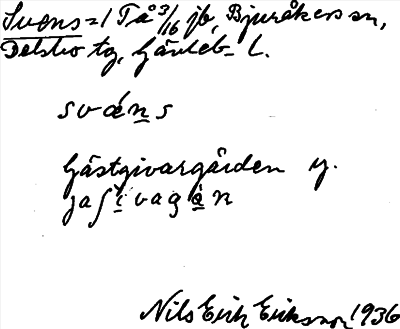 Svens = 1 Tå 3/16 jb, Bjuråkers sn,
Delsbo tg, Gävleb. l.
svǽns
Gästgivargården g.
jaʃìvagạ̀n
Nils Erik Eriksson 1936